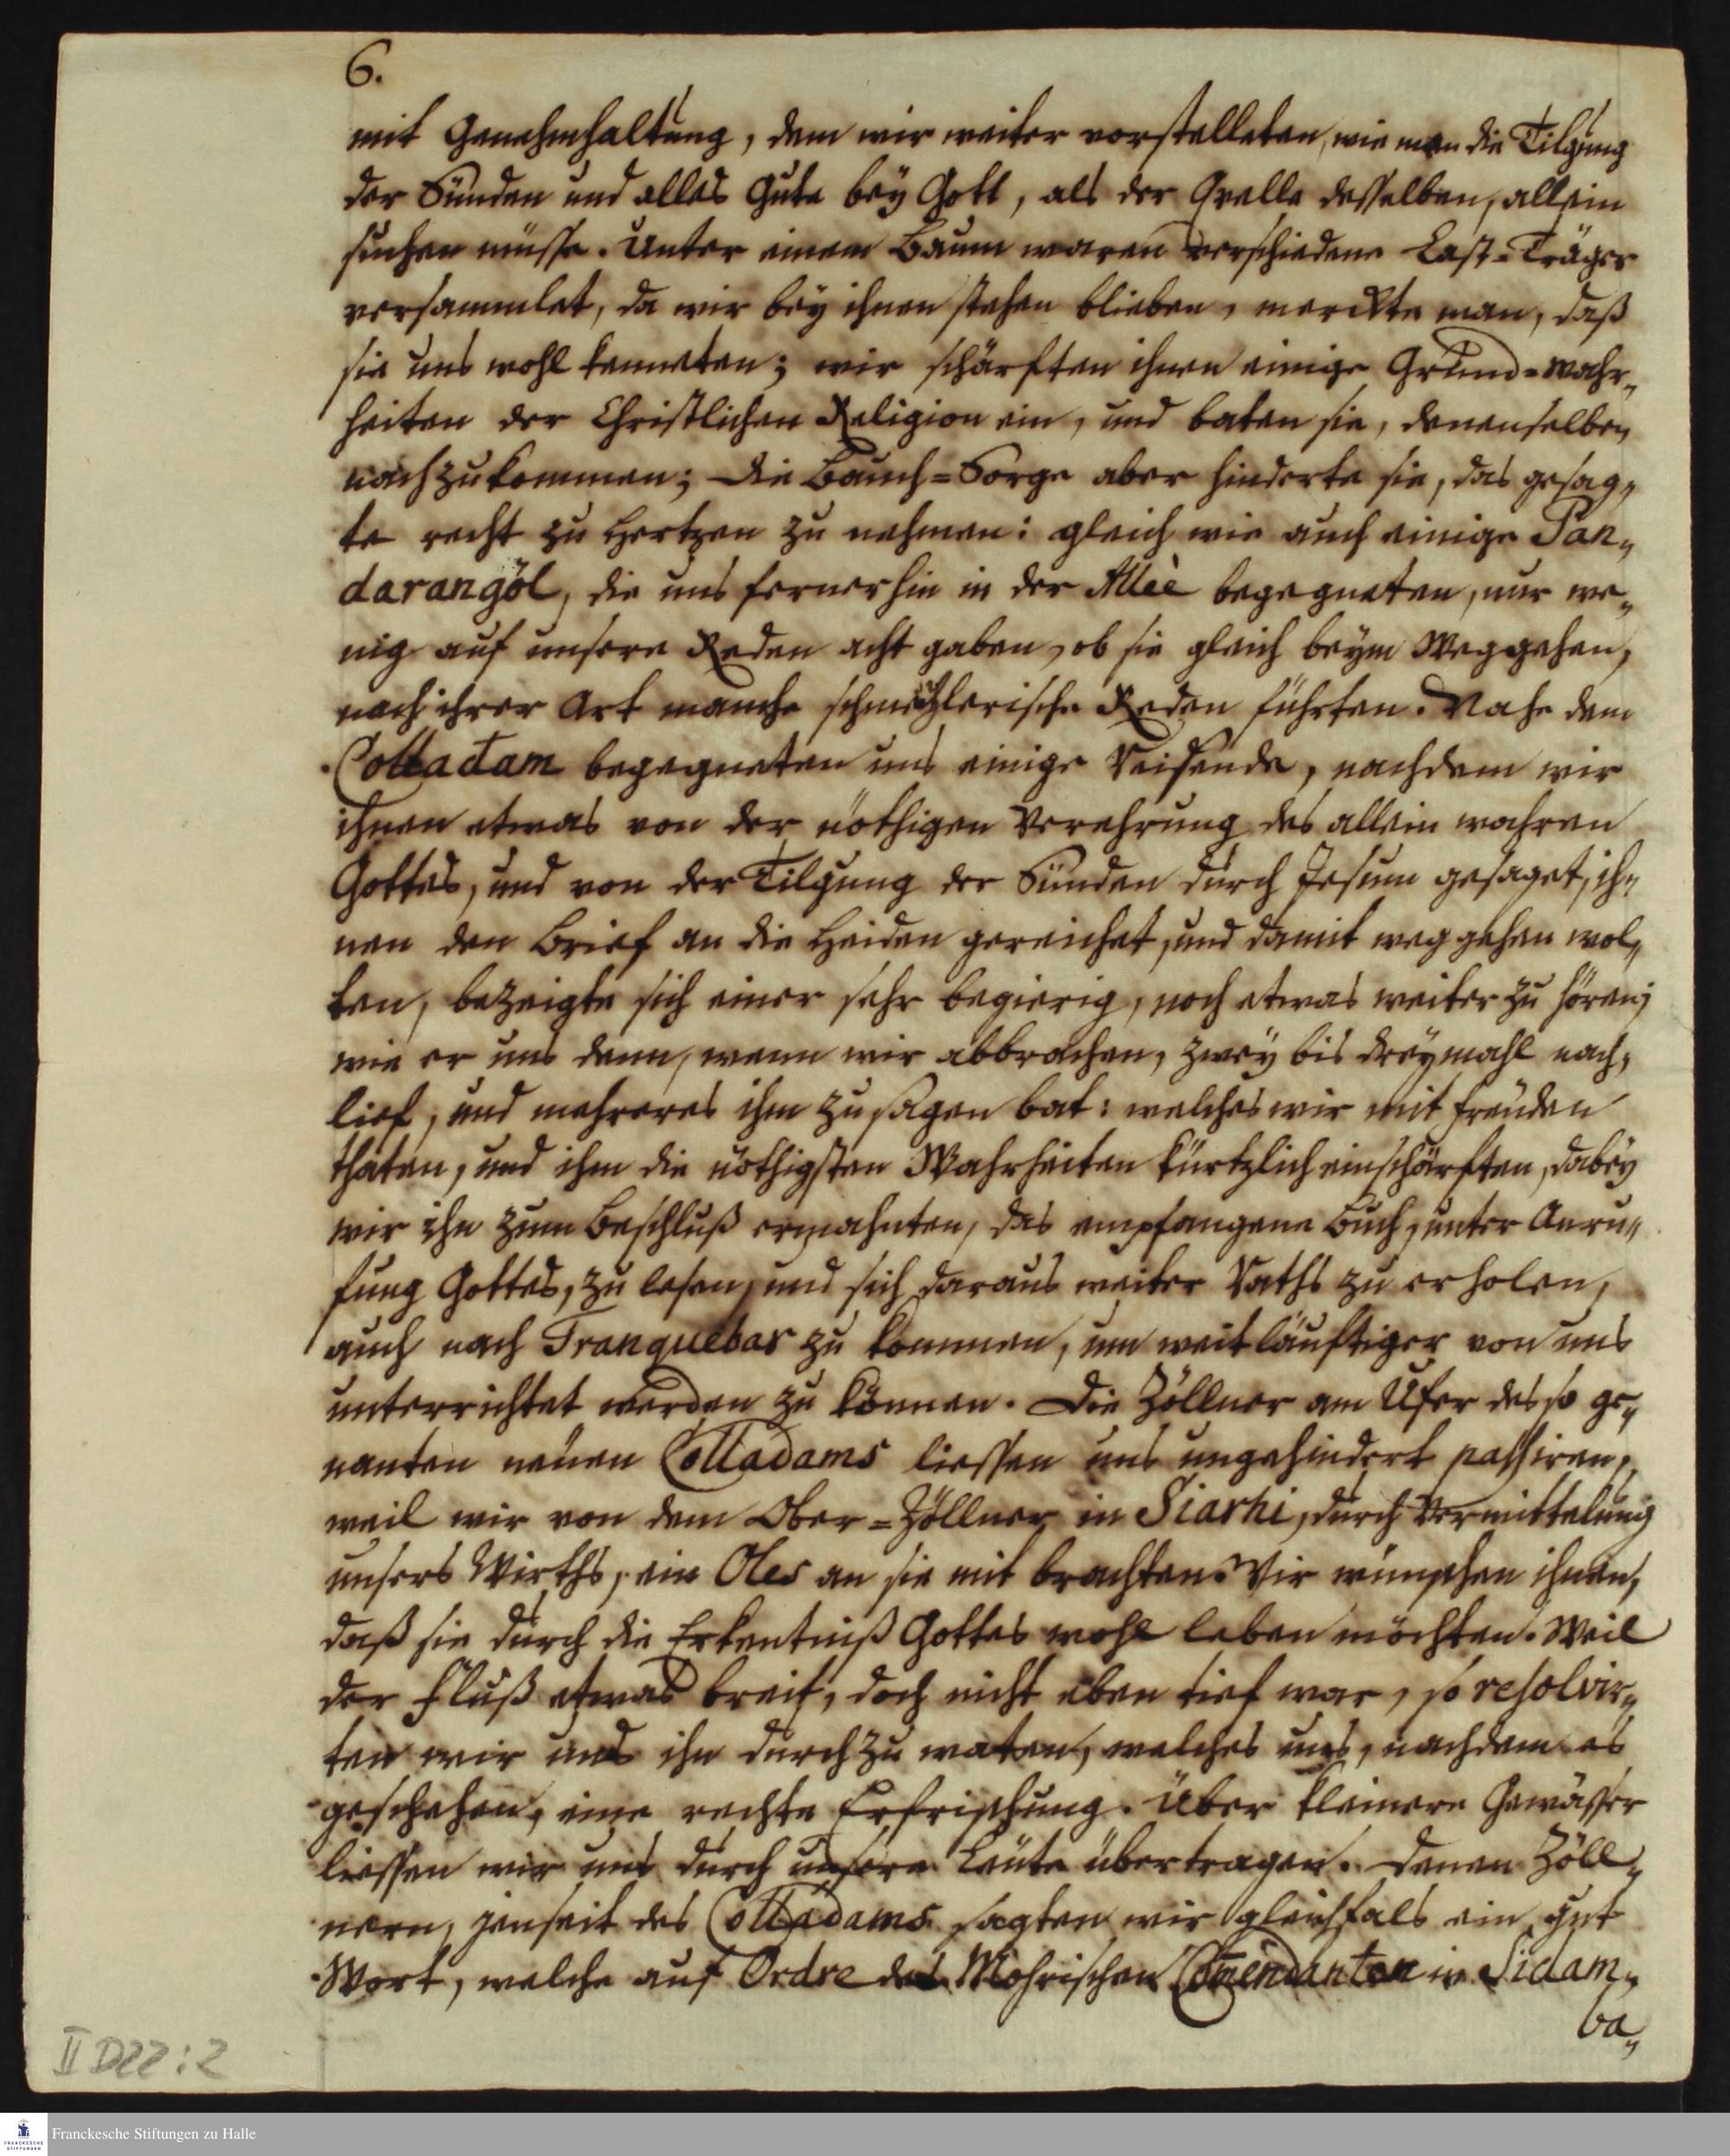 6.
mit Genehmhaltung, dem wir weiter vorstelleten, wie man die Tilgung
der Sünden und alles Gute bey Gott, als der Qvelle desselben, allein
suchen müsse. Unter einem Baum waren verschiedene Last-Träger
versammlet, da wir bey ihnen stehen blieben, merckte man, daß
sie uns wohl kenneten; wir schärften ihnen einige Grund-Wahr„
heiten der Christlichen Religion ein, und baten sie, denenselben
nachzukommen; die Bauch-Sorge aber hinderte sie, das gesag„
te recht zu Hertzen zu nehmen: gleich wie auch einige Pan„
darangöl, die uns fernerhin in der Alleè begegneten, nur we„
nig auf unsere Reden acht gaben, ob sie gleich beym Weggehen,
nach ihrer Art manche schmeichlerische Reden führten. Nahe dem
Colladam begegneten uns einige Reisende, nachdem wir
ihnen etwas von der nöthigen Verehrung des allein wahren
Gottes, und von der Tilgung der Sünden durch Jesum gesaget, ih„
nen den Brief an die Heiden gereichet, und damit weggehen wol„
ten, bezeigte sich einer sehr begierig, noch etwas weiter zu hören;
wie er uns denn, wenn wir abbrachen, zwey bis dreymahl nach„
lief, und mehreres ihm zu sagen bat: welches wir mit Freuden
thaten, und ihm die nöthigsten Wahrheiten kürtzlich einschärften, dabey
wir ihn zum Beschluß ermahnten, das empfangene Buch, unter Anru„
fung Gottes, zu lesen, und sich daraus weiter Raths zu erholen,
auch nach Tranquebar zu kommen, um weitläuftiger von uns
unterrichtet werden zu können. Die Zöllner am Ufer des so ge„
nanten neuen Colladams liessen uns ungehindert passiren,
weil wir von dem Ober-Zöllner in Siarhi, durch Vermittelung
unsers Wirths, ein Oles an sie mit brachten. Wir wünschen ihnen,
daß sie durch die Erkentniß Gottes wohl leben möchten. Weil
der Fluß etwas breit, doch nicht eben tief war, so resolvir„
ten wir uns ihn durchzu waten, welches uns, nachdem es
geschehen, eine rechte Erfrischung. Über kleinere Gewässer
liessen wir uns durch unsere Leute übertragen. Denen Zöll„
nern, jenseit des Colladams sagten wir gleichfals ein gut
Wort, welche auf Ordre des Mohrischen Comendanten in Sidam„
ba„
II D22:2
Franckesche Stiftungen zu Halle